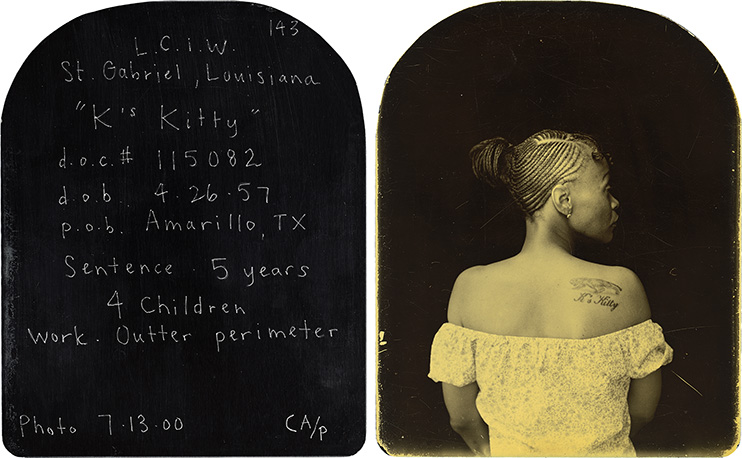 143
L.C.i.W.
St. Gabriel, Louisiana
"K's Kitty"
d.o.c.# 115082
d.o.b. 4.26.57
p.o.b. Amarillo, TX
Sentence . 5 years
4 Children
work. Outter perimeter
Photo 7.13.00 CA/p
K's Kitty